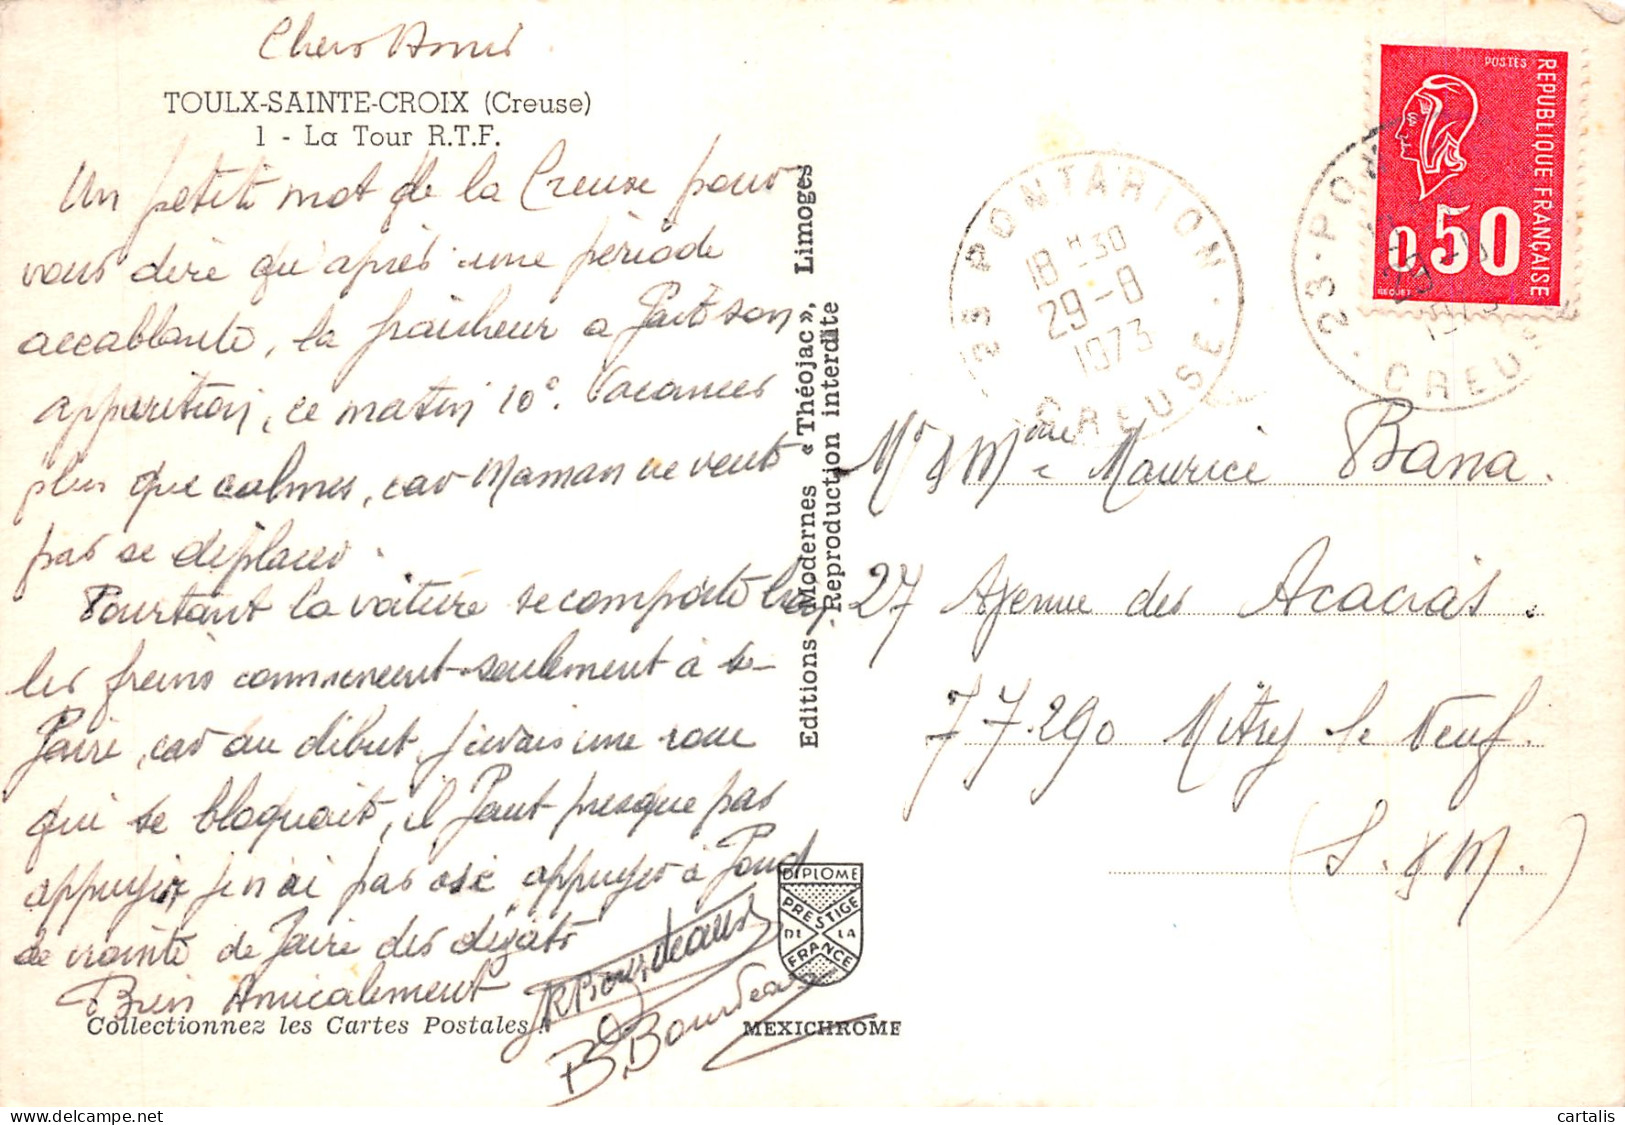 Chers Amis
TOULX-SAINTE-CROIX (Creuse)
1 - La Tour R.T.F.
Un petit mot de la Creuse pour
vous dire qu'après une période
accablante, la fraicheur a fait son
apparition, ce matin 10°. Vacances
plus que calmes, car Maman ne veut
pas se déplacer.
Pourtant la voiture se comporte bien,
les freins commencent seulement à se
faire, car au début j'avais une roue
qui se bloquait, il faut presque pas
appuyer, je n'ai pas osé appuyer à fond
de crainte de faire des dégats
Bien Amicalement
R Bourdeaux
B. Bourdeaux
Collectionnez les Cartes Postales
Editions Modernes « Théojac », Limoges
Reproduction interdite
DIPLOME
PRESTIGE
DE LA
FRANCE
MEXICHROME
23 PONTARION
18 H 30
29-8
1973
CREUSE
23 - PON
29-8
1973
CREUSE
POSTES
REPUBLIQUE FRANÇAISE
0,50
Mr & Mme Maurice Bana.
27 Avenue des Acacias.
77290 Mitry le Neuf.
(S. & M.)
cartalis